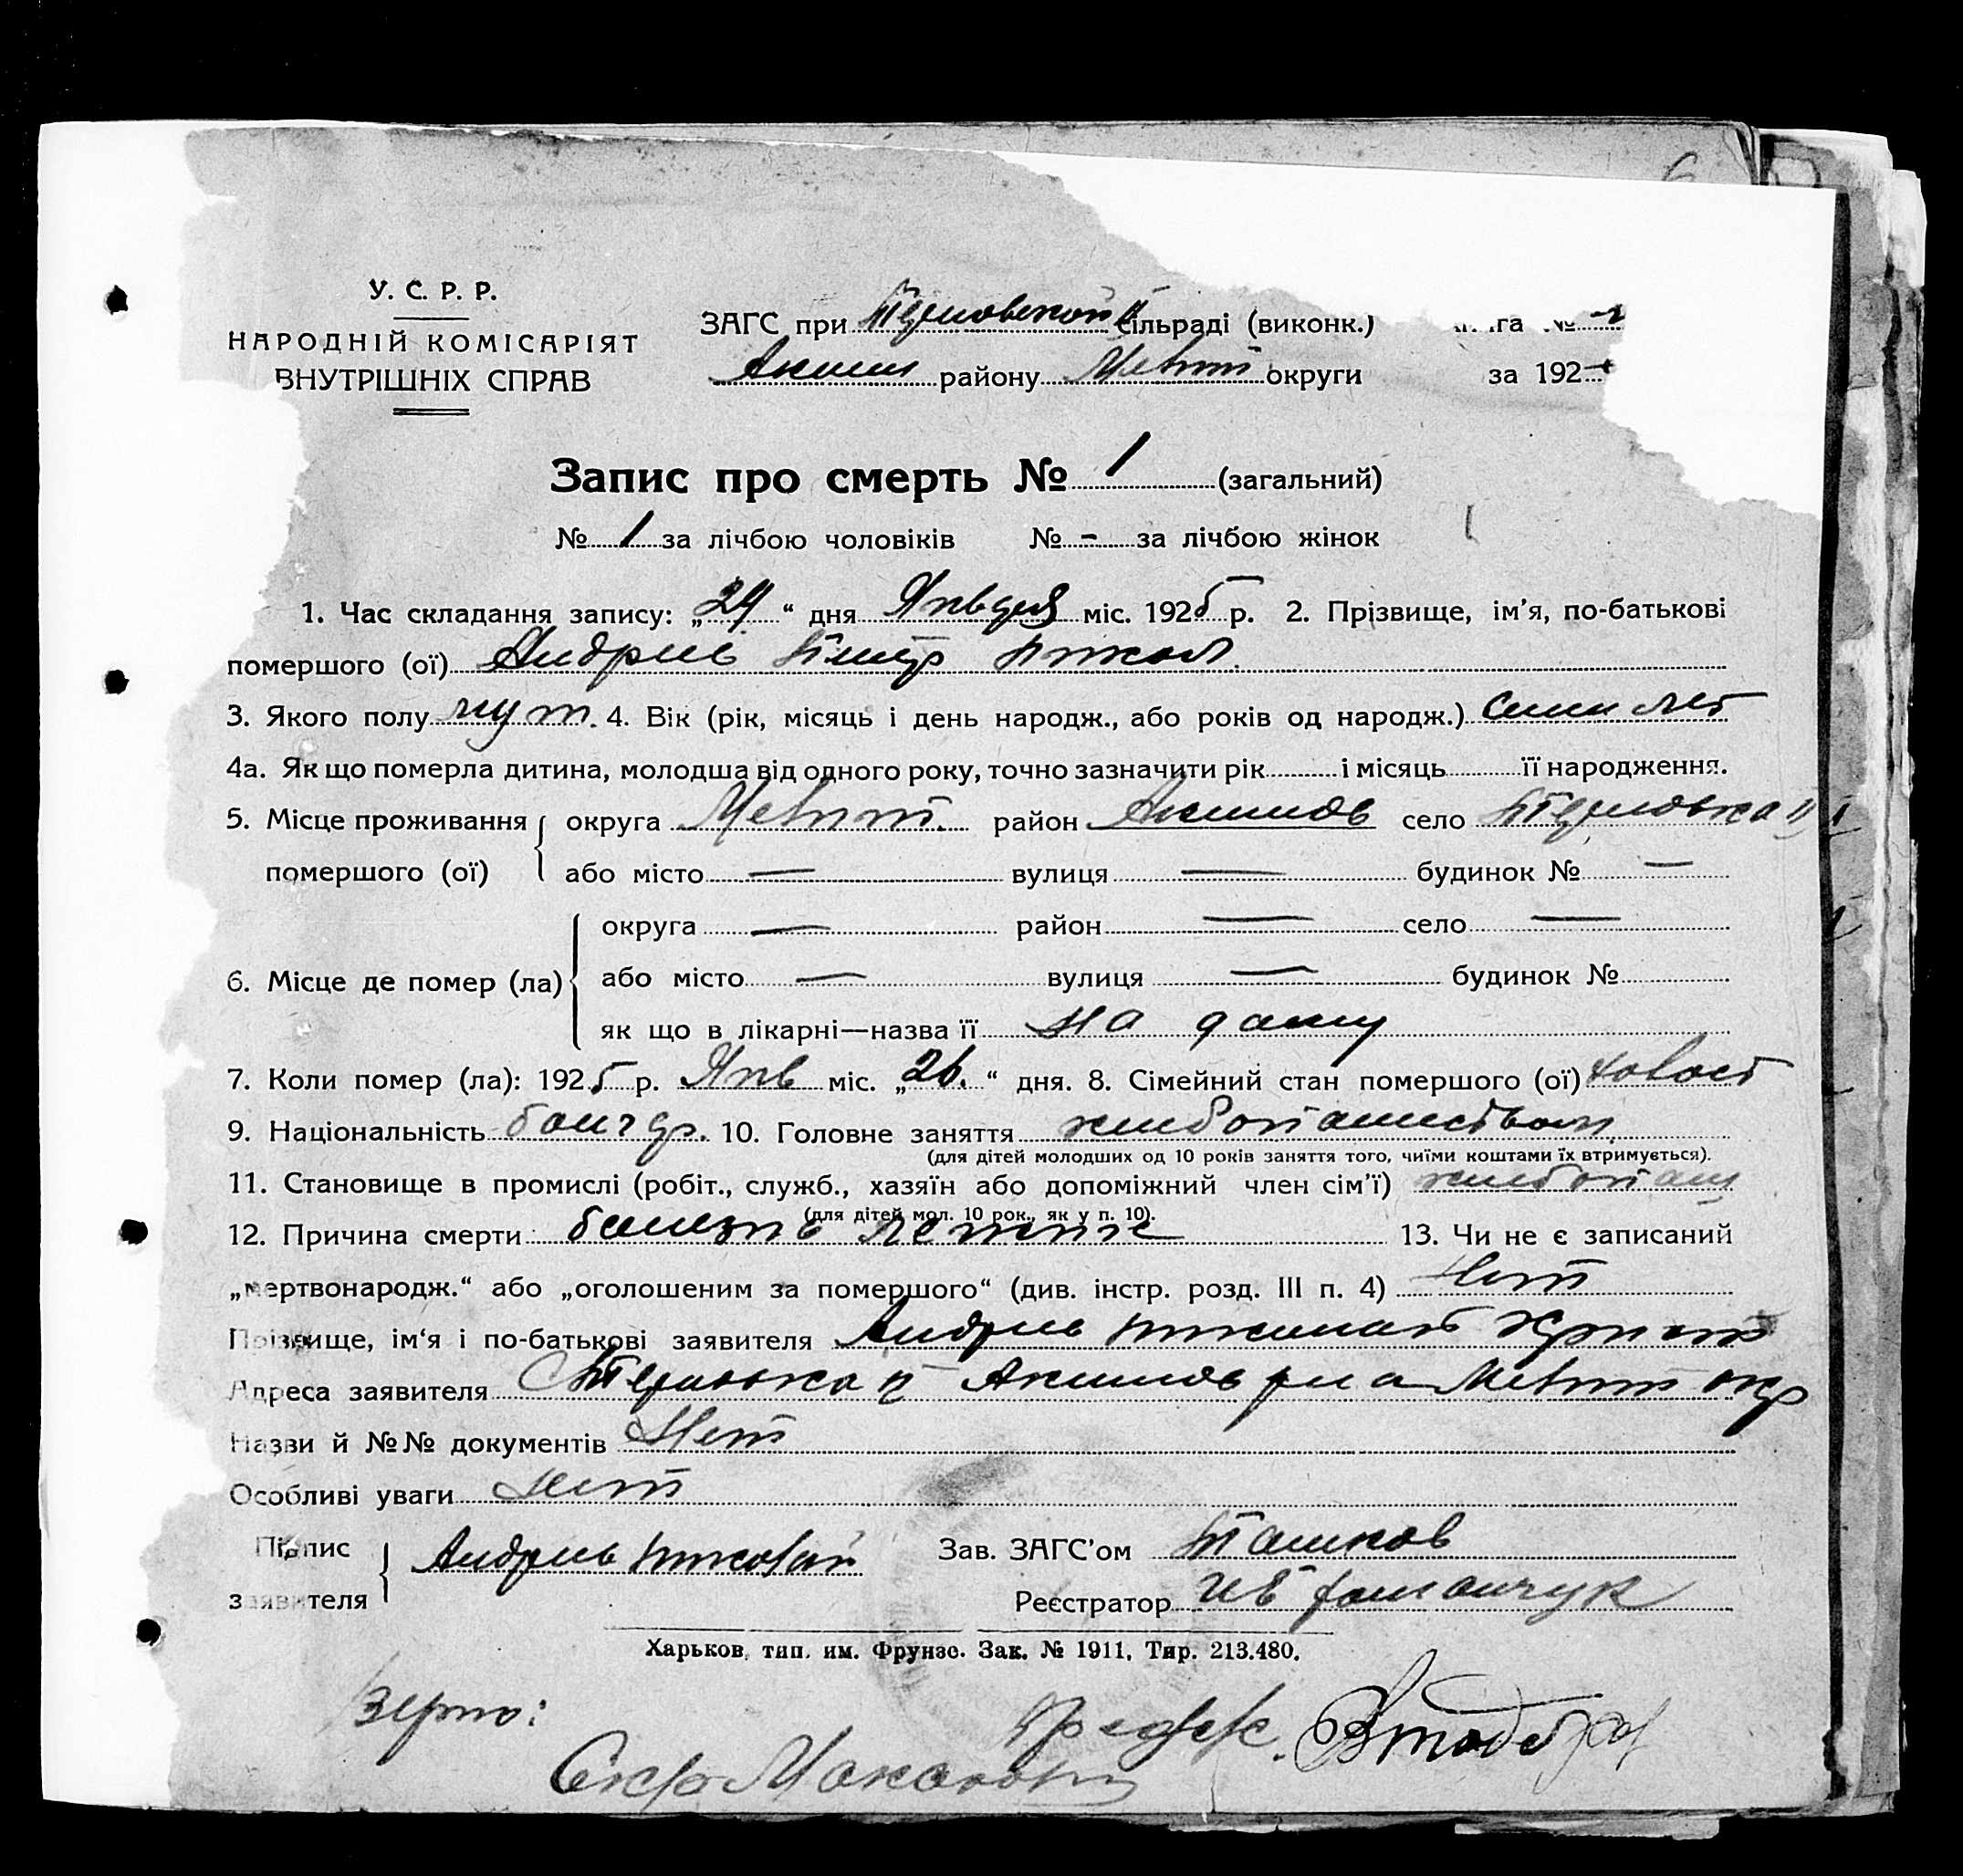 У. С. Р. Р.
НАРОДНІЙ КОМІСАРІЯТ
ВНУТРІШНІХ СПРАВ
ЗАГС при Терновской II сільраді (виконк.)
Аким району Мелит округи за 192
Запис про смерть № 1 (загальний)
№ 1 за лічбою чоловіків № - за лічбою жінок
1. Час складання запису: „ “ дня Января міс. 1925 р. 2. Прізвище, ім'я, по-батькові
помершого (ої) Андрив Никол.
3. Якого полу муж. 4. Вік (рік, місяць і день народж., або років од народж.) Семи лет
4а. Як що померла дитина, молодша від одного року, точно зазначити рік і місяць її народження.
5. Місце проживання округа Мелит. район Акимов село Терновка II
помершого (ої) або місто — вулиця — будинок № —
округа — район — село —
6. Місце де помер (ла) або місто — вулиця — будинок №
як що в лікарні—назва її на дому
7. Коли помер (ла): 1925 р. Янв міс. „ “ дня. 8. Сімейний стан помершого (ої) холост
9. Національність болгар. 10. Головне заняття хлебопашеством
(для дітей молодших од 10 років заняття того, чиїми коштами їх втримується).
11. Становище в промислі (робіт., служб., хазяїн або допоміжний член сім'ї) хлебопаш
(для дітей мол. 10 рок., як у п. 10).
12. Причина смерти болезнь легкие 13. Чи не є записаний
„мертвонародж.“ або „оголошеним за помершого“ (див. інстр. розд. III п. 4) Нет
Прізвище, ім'я і по-батькові заявителя Андрив Николай
Адреса заявителя С Терновка II Акимов р на Мелит окр
Назви й №№ документів Нет
Особливі уваги Нет
Підпис Андрив Николай Зав. ЗАГС'ом Ташков
заявителя Реєстратор
Харьков, тип. им. Фрунзе. Зак. № 1911, Тир. 213.480.
Верно: